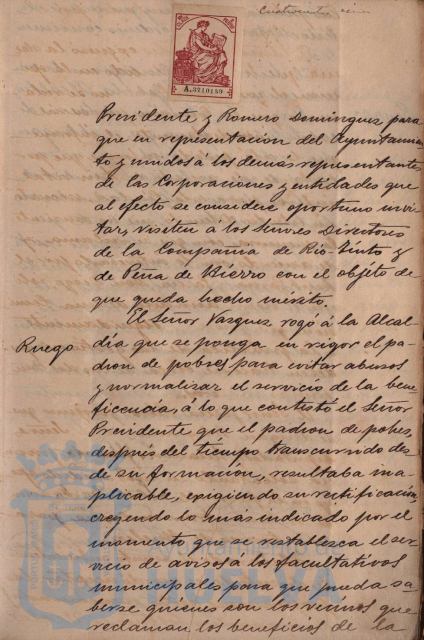 A.3210159
Presidente y Romero Dominguez para
que en representacion del Ayuntamien
to y unidos á los demás representantes
de las Corporaciones y entidades que
al efecto se considere oportuno invi
tar, visiten á los Señores Directores
de la Compañia de Rio-Tinto y
de Peña de Hierro con el objeto de
que queda hecho mérito.
El Señor Vazquez rogó á la Alcal-
Ruego
día que se ponga en vigor el pa
dron de pobres para evitar abusos
y normalizar el servicio de la bene
ficencia, á lo que contestó el Señor
Presidente que el padron de pobres,
después del tiempo transcurrido des
de su formación, resultaba ina
plicable, exigiendo su rectificación,
creyendo lo más indicado por el
momento que se restablezca el ser
vicio de avisos á los facultativos
municipales para que pueda sa
berse quienes son los vecinos que
reclaman los beneficios de la